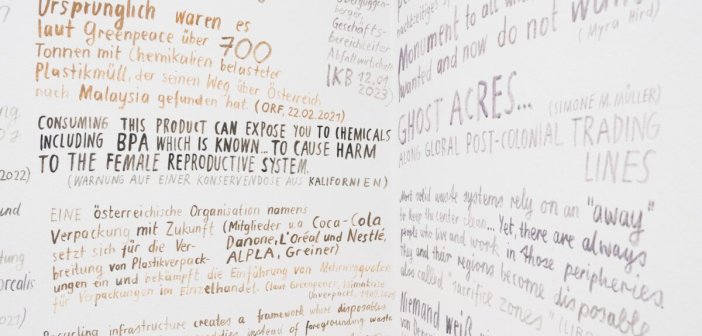 Ursprünglich waren es
laut Greenpeace über 700
Tonnen mit Chemikalien belasteter
Plastikmüll, der seinen Weg über Österreich
nach Malaysia gefunden hat. (ORF, 22.02.2021)
berger,
Geschäfts-
bereichsleiter
Abfallwirtschaft
IKB 12.01
2023)
CONSUMING THIS PRODUCT CAN EXPOSE YOU TO CHEMICALS
INCLUDING BPA WHICH IS KNOWN... TO CAUSE HARM
TO THE FEMALE REPRODUCTIVE SYSTEM.
(WARNUNG AUF EINER KONSERVENDOSE AUS KALIFORNIEN)
2022)
und
EINE österreichische Organisation namens
Verpackung mit Zukunft (Mitglieder u.a. Coca-Cola
Danone, L'Oréal und Nestlé,
ALPLA, Greiner)
setzt sich für die Ver-
breitung von Plastikverpack-
ungen ein und bekämpft die Einführung von Mehrwegquoten
für Verpackungen im Einzelhandel. (laut Greenpeace,
Recycling infrastructure creates a framework where disposables
instead of foregrounding waste
Monument to all
wanted and now do not
(Myra Hird)
GHOST ACRES... (SIMONE M. MÜLLER)
ALONG GLOBAL POST-COLONIAL TRADING
LINES
Most solid waste systems rely on an "away"
to keep the center clean... Yet, there are always
people who live and work in those peripheries.
They and their regions become disposable
also called "sacrifice zones"
Niemand weiß